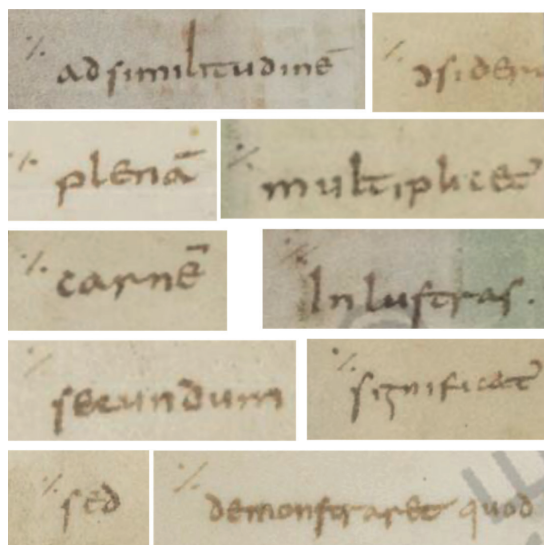 ⁒ ad similitudinē
⁒ ɔsidera
⁒ plenā
⁒ multiplicet
⁒ carnē
⁒ Inlustras.
⁒ secundum
⁒ significat
⁒ sed
⁒ demonstraret quod